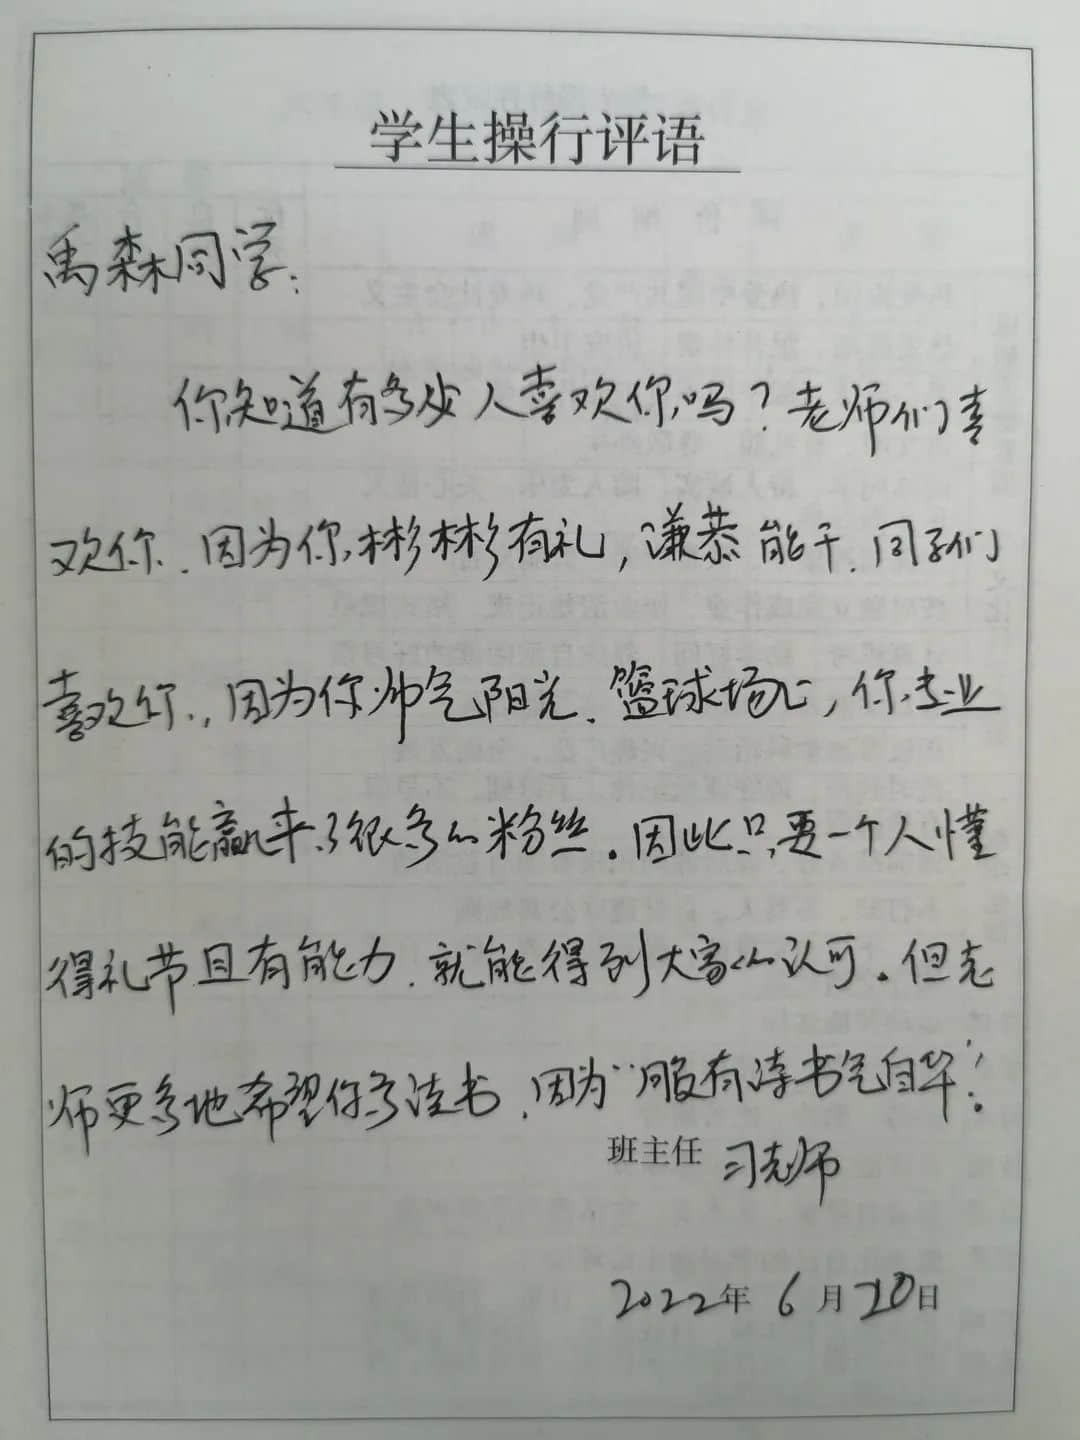 学生操行评语
禹森同学：
你知道有多少人喜欢你吗？老师们喜
欢你、因为你彬彬有礼，谦恭能干、同学们
喜欢你，因为你帅气阳光、篮球场上，你专业
的技能赢来了很多的粉丝。因此只要一个人懂
得礼节且有能力、就能得到大家的认可。但老
师更多地希望你多读书、因为“腹有诗书气自华”！
班主任 习老师
2022年 6 月 20日